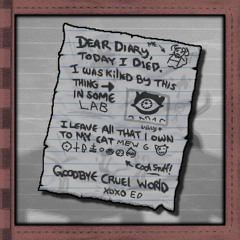 DEAR DIARY,
ME
TODAY I DIED.
I WAS KILLED BY THIS
THING →
IN SOME
LAB
UGLY
I LEAVE ALL THAT I OWN
TO MY CAT MEW G
COOL STUFF!
GOODBYE CRUEL WORLD
XOXO ED